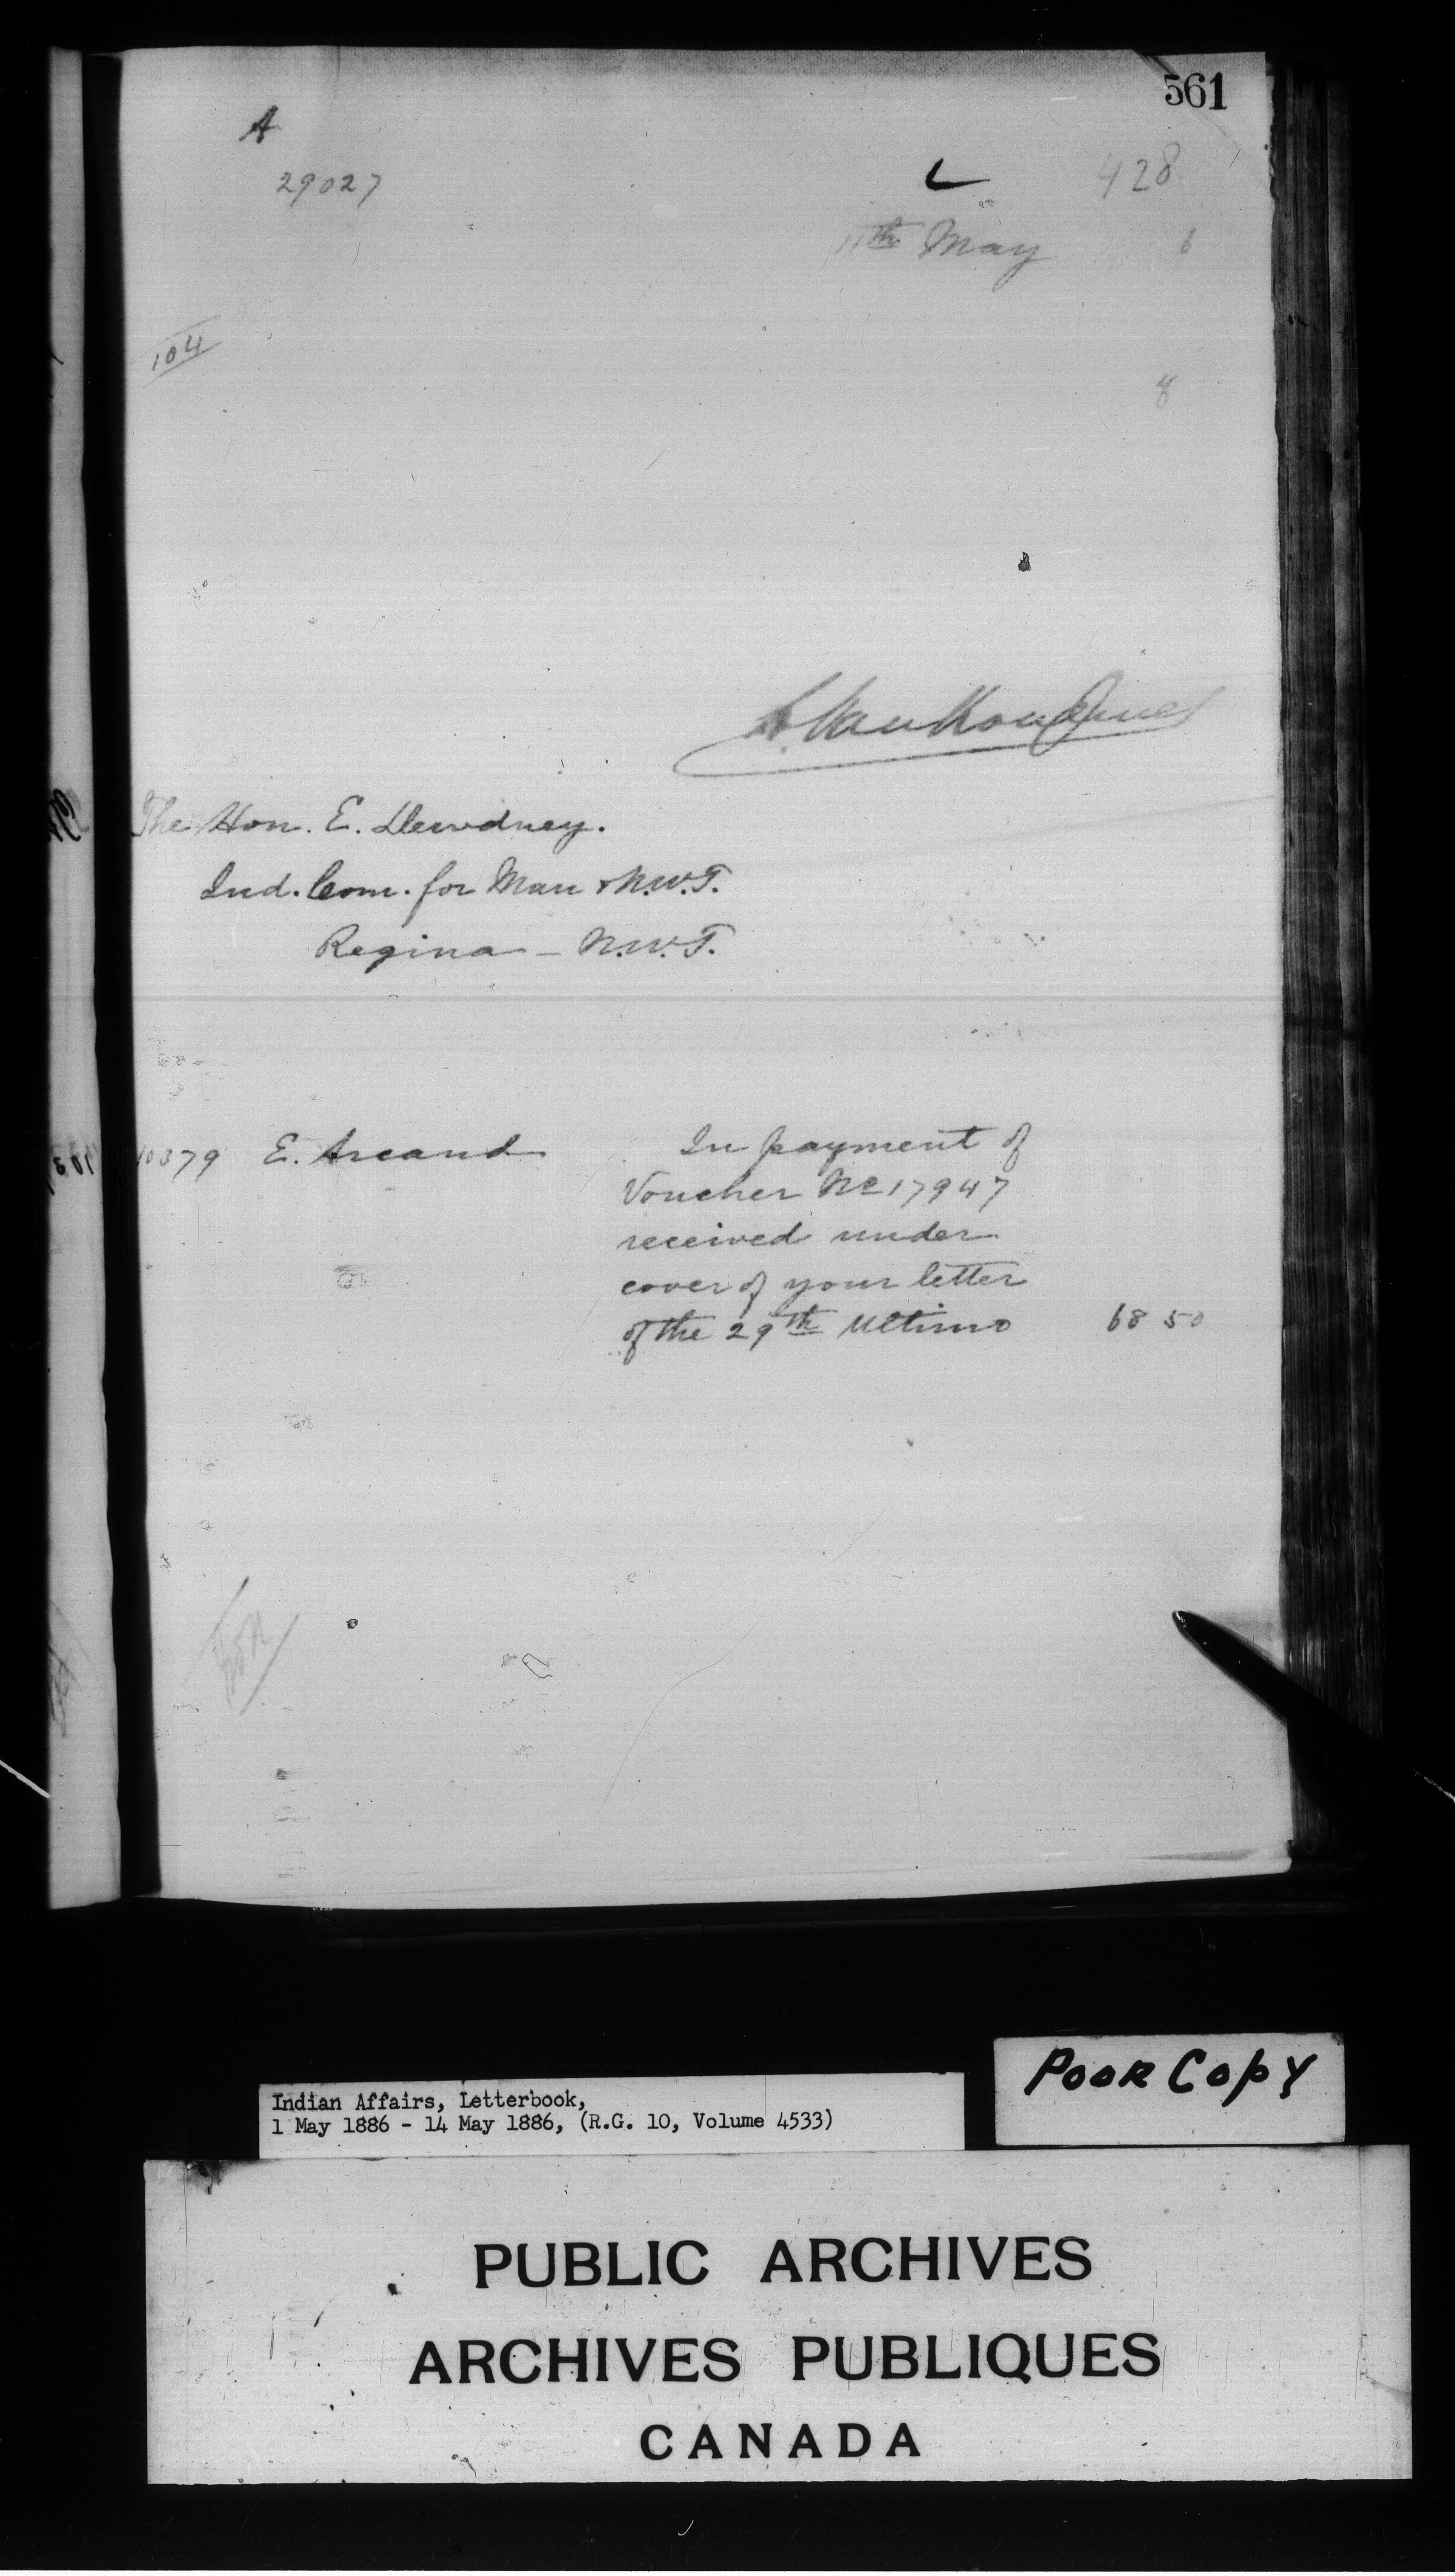 561
A
29027
L
428
11th May
6
104
8
L. VanKoughnet
The Hon. E. Dewdney.
Ind. Com. for Man & N.W.T.
Regina - N.W.T.
10379 E. Arcand In payment of
Voucher No 17947
received under
cover of your letter
of the 29th Ultimo 68 50
Poor Copy
Indian Affairs, Letterbook,
1 May 1886 - 14 May 1886, (R.G. 10, Volume 4533)
PUBLIC ARCHIVES
ARCHIVES PUBLIQUES
CANADA